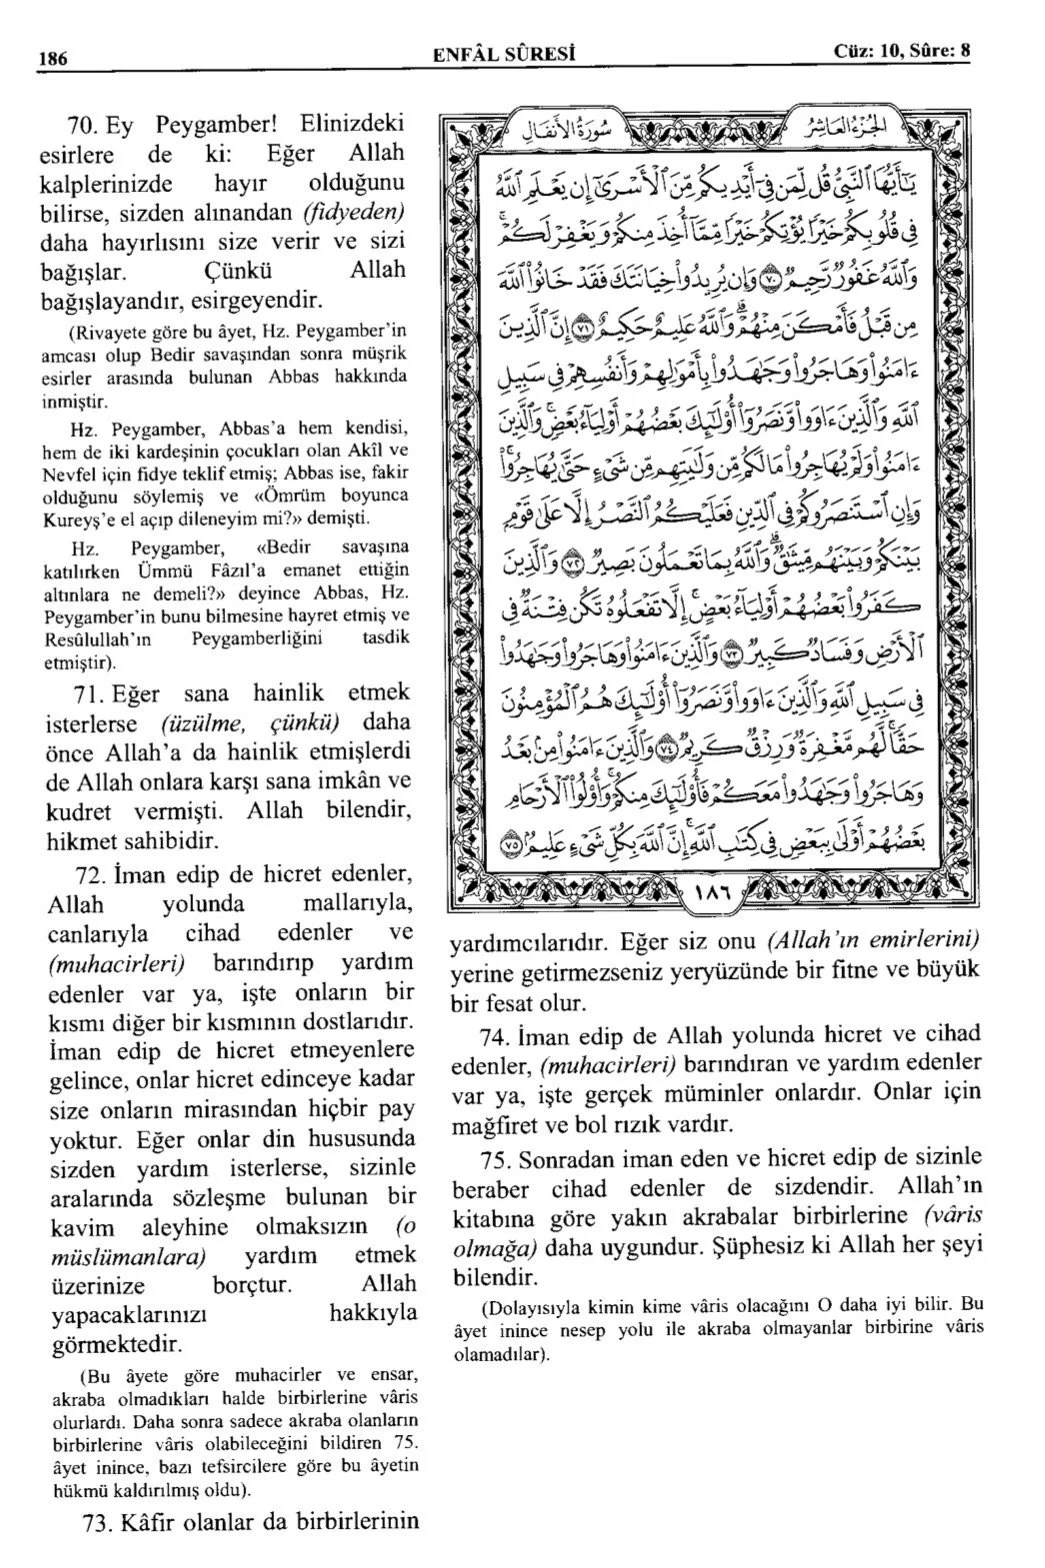 186
ENFÂL SÛRESİ
Cüz: 10, Sûre: 8
70. Ey Peygamber! Elinizdeki
esirlere de ki: Eğer Allah
kalplerinizde hayır olduğunu
bilirse, sizden alınandan (fidyeden)
daha hayırlısını size verir ve sizi
bağışlar. Çünkü Allah
bağışlayandır, esirgeyendir.
(Rivayete göre bu âyet, Hz. Peygamber'in
amcası olup Bedir savaşından sonra müşrik
esirler arasında bulunan Abbas hakkında
inmiştir.
Hz. Peygamber, Abbas'a hem kendisi,
hem de iki kardeşinin çocukları olan Akîl ve
Nevfel için fidye teklif etmiş; Abbas ise, fakir
olduğunu söylemiş ve «Ömrüm boyunca
Kureyş'e el açıp dileneyim mi?» demişti.
Hz. Peygamber, «Bedir savaşına
katılırken Ümmü Fâzıl'a emanet ettiğin
altınlara ne demeli?» deyince Abbas, Hz.
Peygamber'in bunu bilmesine hayret etmiş ve
Resûlullah'ın Peygamberliğini tasdik
etmiştir).
71. Eğer sana hainlik etmek
isterlerse (üzülme, çünkü) daha
önce Allah'a da hainlik etmişlerdi
de Allah onlara karşı sana imkân ve
kudret vermişti. Allah bilendir,
hikmet sahibidir.
72. İman edip de hicret edenler,
Allah yolunda mallarıyla,
canlarıyla cihad edenler ve
(muhacirleri) barındırıp yardım
edenler var ya, işte onların bir
kısmı diğer bir kısmının dostlarıdır.
İman edip de hicret etmeyenlere
gelince, onlar hicret edinceye kadar
size onların mirasından hiçbir pay
yoktur. Eğer onlar din hususunda
sizden yardım isterlerse, sizinle
aralarında sözleşme bulunan bir
kavim aleyhine olmaksızın (o
müslümanlara) yardım etmek
üzerinize borçtur. Allah
yapacaklarınızı hakkıyla
görmektedir.
(Bu âyete göre muhacirler ve ensar,
akraba olmadıkları halde birbirlerine vâris
olurlardı. Daha sonra sadece akraba olanların
birbirlerine vâris olabileceğini bildiren 75.
âyet inince, bazı tefsircilere göre bu âyetin
hükmü kaldırılmış oldu).
73. Kâfir olanlar da birbirlerinin
الجُزْءُ العَاشِرُ
سُورَةُ الأَنفَال
يَٰٓأَيُّهَا ٱلنَّبِىُّ قُل لِّمَن فِىٓ أَيْدِيكُم مِّنَ ٱلْأَسْرَىٰٓ إِن يَعْلَمِ ٱللَّهُ
فِى قُلُوبِكُمْ خَيْرًا يُؤْتِكُمْ خَيْرًا مِّمَّآ أُخِذَ مِنكُمْ وَيَغْفِرْ لَكُمْ ۗ
وَٱللَّهُ غَفُورٌ رَّحِيمٌ ۝٧٠ وَإِن يُرِيدُوا۟ خِيَانَتَكَ فَقَدْ خَانُوا۟ ٱللَّهَ
مِن قَبْلُ فَأَمْكَنَ مِنْهُمْ ۗ وَٱللَّهُ عَلِيمٌ حَكِيمٌ ۝٧١ إِنَّ ٱلَّذِينَ
ءَامَنُوا۟ وَهَاجَرُوا۟ وَجَٰهَدُوا۟ بِأَمْوَٰلِهِمْ وَأَنفُسِهِمْ فِى سَبِيلِ
ٱللَّهِ وَٱلَّذِينَ ءَاوَوا۟ وَّنَصَرُوٓا۟ أُو۟لَٰٓئِكَ بَعْضُهُمْ أَوْلِيَآءُ بَعْضٍ ۚ وَٱلَّذِينَ
ءَامَنُوا۟ وَلَمْ يُهَاجِرُوا۟ مَا لَكُم مِّن وَلَٰيَتِهِم مِّن شَىْءٍ حَتَّىٰ يُهَاجِرُوا۟ ۚ
وَإِنِ ٱسْتَنصَرُوكُمْ فِى ٱلدِّينِ فَعَلَيْكُمُ ٱلنَّصْرُ إِلَّا عَلَىٰ قَوْمٍۭ
بَيْنَكُمْ وَبَيْنَهُم مِّيثَٰقٌ ۗ وَٱللَّهُ بِمَا تَعْمَلُونَ بَصِيرٌ ۝٧٢ وَٱلَّذِينَ
كَفَرُوا۟ بَعْضُهُمْ أَوْلِيَآءُ بَعْضٍ ۚ إِلَّا تَفْعَلُوهُ تَكُن فِتْنَةٌ فِى
ٱلْأَرْضِ وَفَسَادٌ كَبِيرٌ ۝٧٣ وَٱلَّذِينَ ءَامَنُوا۟ وَهَاجَرُوا۟ وَجَٰهَدُوا۟
فِى سَبِيلِ ٱللَّهِ وَٱلَّذِينَ ءَاوَوا۟ وَّنَصَرُوٓا۟ أُو۟لَٰٓئِكَ هُمُ ٱلْمُؤْمِنُونَ
حَقًّا ۚ لَّهُم مَّغْفِرَةٌ وَرِزْقٌ كَرِيمٌ ۝٧٤ وَٱلَّذِينَ ءَامَنُوا۟ مِنۢ بَعْدُ
وَهَاجَرُوا۟ وَجَٰهَدُوا۟ مَعَكُمْ فَأُو۟لَٰٓئِكَ مِنكُمْ ۚ وَأُو۟لُوا۟ ٱلْأَرْحَامِ
بَعْضُهُمْ أَوْلَىٰ بِبَعْضٍ فِى كِتَٰبِ ٱللَّهِ ۗ إِنَّ ٱللَّهَ بِكُلِّ شَىْءٍ عَلِيمٌۢ ۝٧٥
١٨٦
yardımcılarıdır. Eğer siz onu (Allah'ın emirlerini)
yerine getirmezseniz yeryüzünde bir fitne ve büyük
bir fesat olur.
74. İman edip de Allah yolunda hicret ve cihad
edenler, (muhacirleri) barındıran ve yardım edenler
var ya, işte gerçek müminler onlardır. Onlar için
mağfiret ve bol rızık vardır.
75. Sonradan iman eden ve hicret edip de sizinle
beraber cihad edenler de sizdendir. Allah'ın
kitabına göre yakın akrabalar birbirlerine (vâris
olmağa) daha uygundur. Şüphesiz ki Allah her şeyi
bilendir.
(Dolayısıyla kimin kime vâris olacağını O daha iyi bilir. Bu
âyet inince nesep yolu ile akraba olmayanlar birbirine vâris
olamadılar).